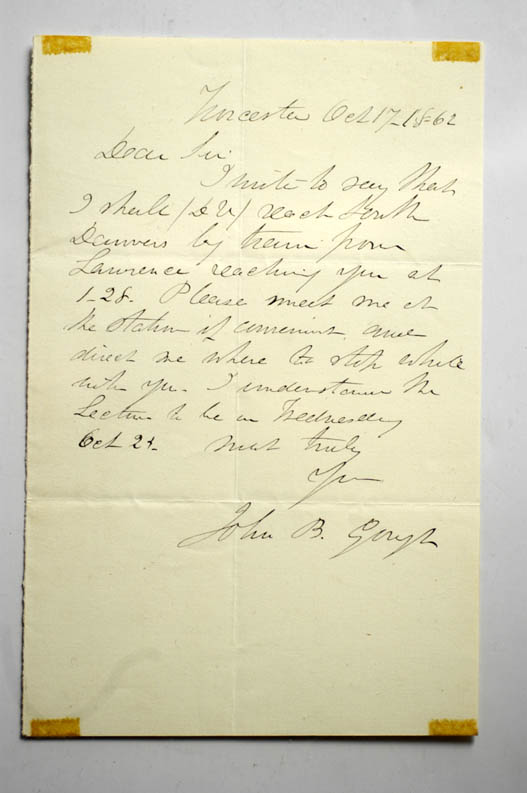 Worcester Oct 17-1862
Dear Sir.
I write to say that
I shall (D V) reach South
Danvers by train from
Lawrence reaching you at
1-28. Please meet me at
the station if convenient, and
direct me where to stop while
with you. I understand the
Lecture to be on Wednesday
Oct 2 most truly
Yrs
John B. Gough